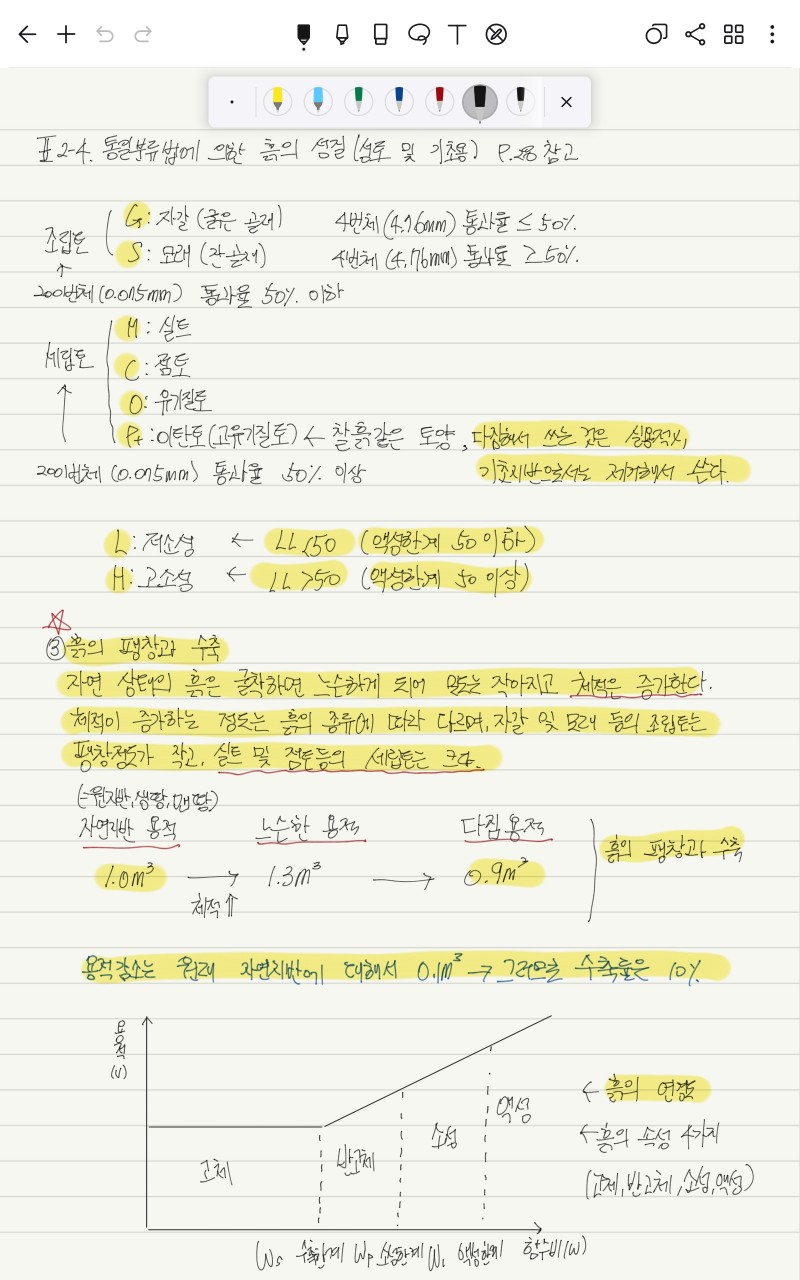 표 2-4. 통일분류법에 의한 흙의 성질 (성토 및 기초용) P.28 참고
조립토
G: 자갈 (굵은 골재) 4번체 (4.76mm) 통과율 ≤ 50%.
S: 모래 (잔골재) 4번체 (4.76mm) 통과율 ≥ 50%.
200번체 (0.075mm) 통과율 50% 이하
세립토
M: 실트
C: 점토
O: 유기질토
Pt: 이탄토(고유기질토) ← 찰흙같은 토양, 다짐해서 쓰는 것은 실용적X,
200번체 (0.075mm) 통과율 50% 이상 기초지반으로서는 제거해서 쓴다.
L: 저소성 ← LL<50 (액성한계 50 이하)
H: 고소성 ← LL>50 (액성한계 50 이상)
③ 흙의 팽창과 수축
자연 상태의 흙은 굴착하면 느슨하게 되어 밀도는 작아지고 체적은 증가한다.
체적이 증가하는 정도는 흙의 종류에 따라 다르며, 자갈 및 모래 등의 조립토는
팽창정도가 작고, 실트 및 점토등의 세립토는 크다.
(=원지반, 생땅, 맨땅)
자연지반 용적 느슨한 용적 다짐용적
1.0m³ → 1.3m³ → 0.9m³
체적⇑
흙의 팽창과 수축
용적감소는 원래 자연지반에 대해서 0.1m³ → 그러므로 수축률은 10%.
용적 (V)
고체 반고체 소성 액성
← 흙의 연경도
← 흙의 속성 4가지
(고체, 반고체, 소성, 액성)
(Ws 수축한계 Wp 소성한계 WL 액성한계 함수비(W)